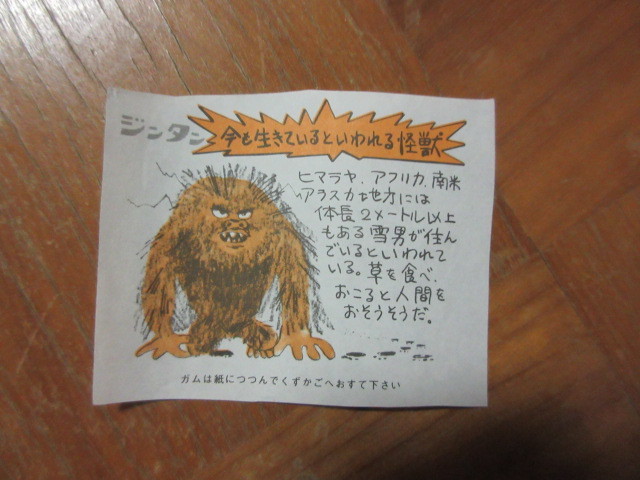 ジンタン
今も生きているといわれる怪獣
ヒマラヤ、アフリカ、南米
アラスカ地方には
体長2メートル以上
もある雪男が住ん
でいるといわれて
いる。草を食べ、
おこると人間を
おそうそうだ。
ガムは紙につつんでくずかごへおすて下さい